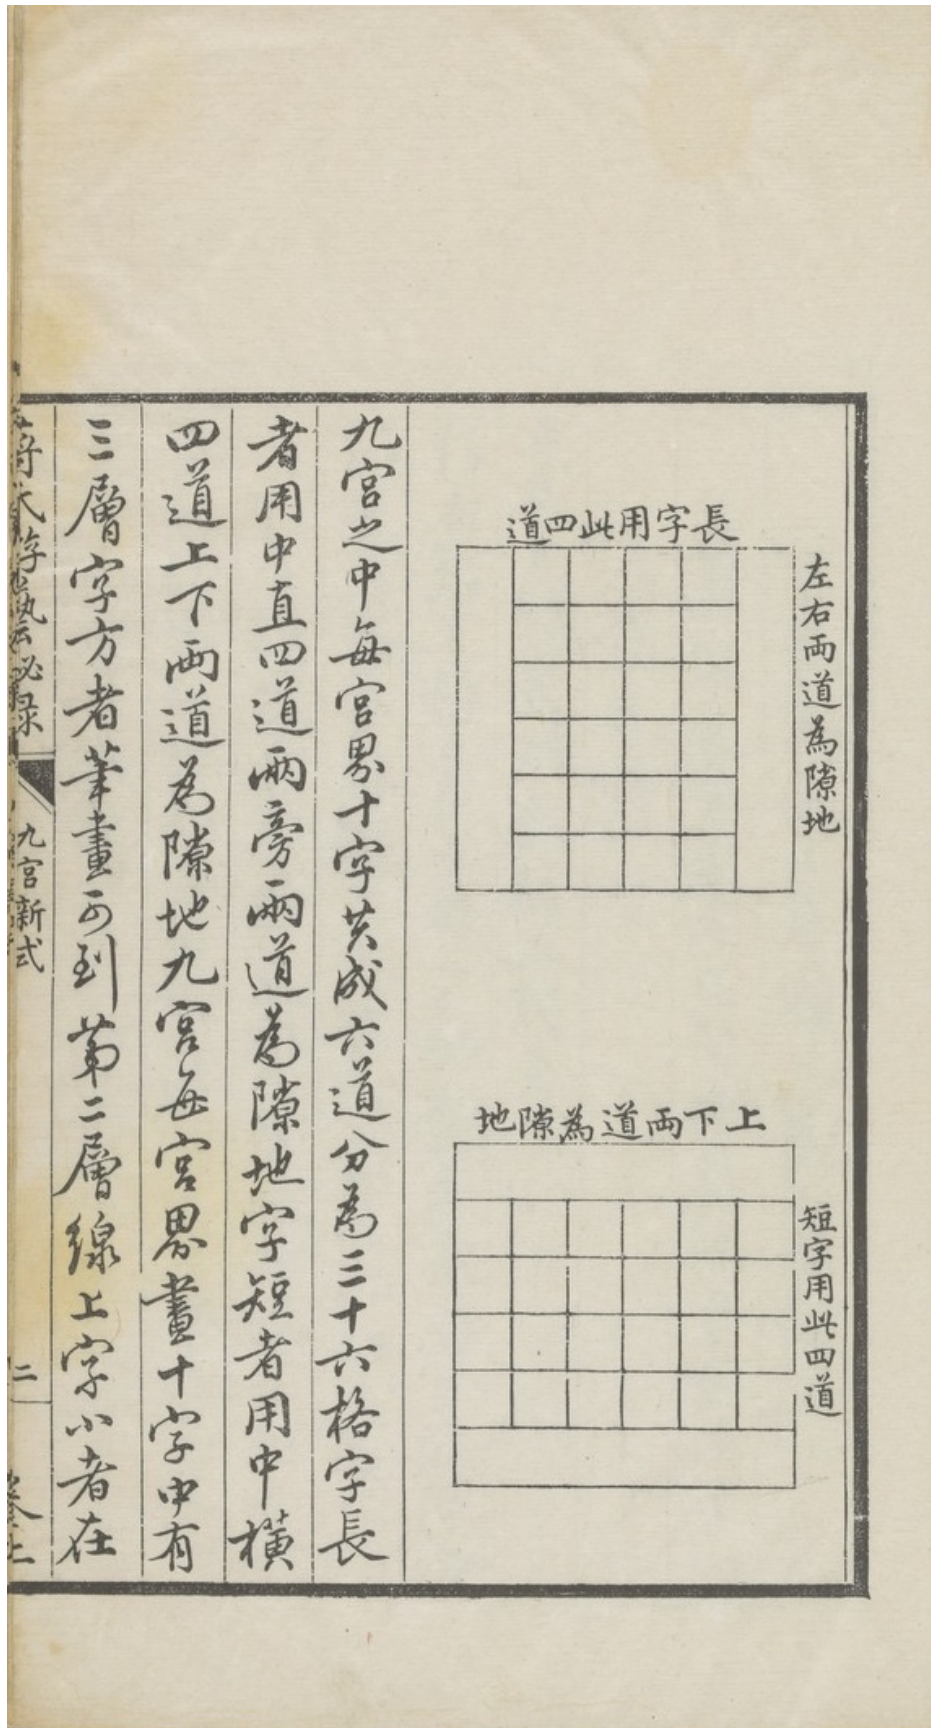 長字用此四道
左右両道為隙地
上下両道為隙地
短字用此四道
九宮之中每宮界十字共成六道分為三十六格字長
者用中直四道兩旁兩道為隙地字短者用中橫
四道上下両道為隙地九宮每宮界畫十字中有
三層字方者筆畫可到第二層線上字小者在
九宮新式
二